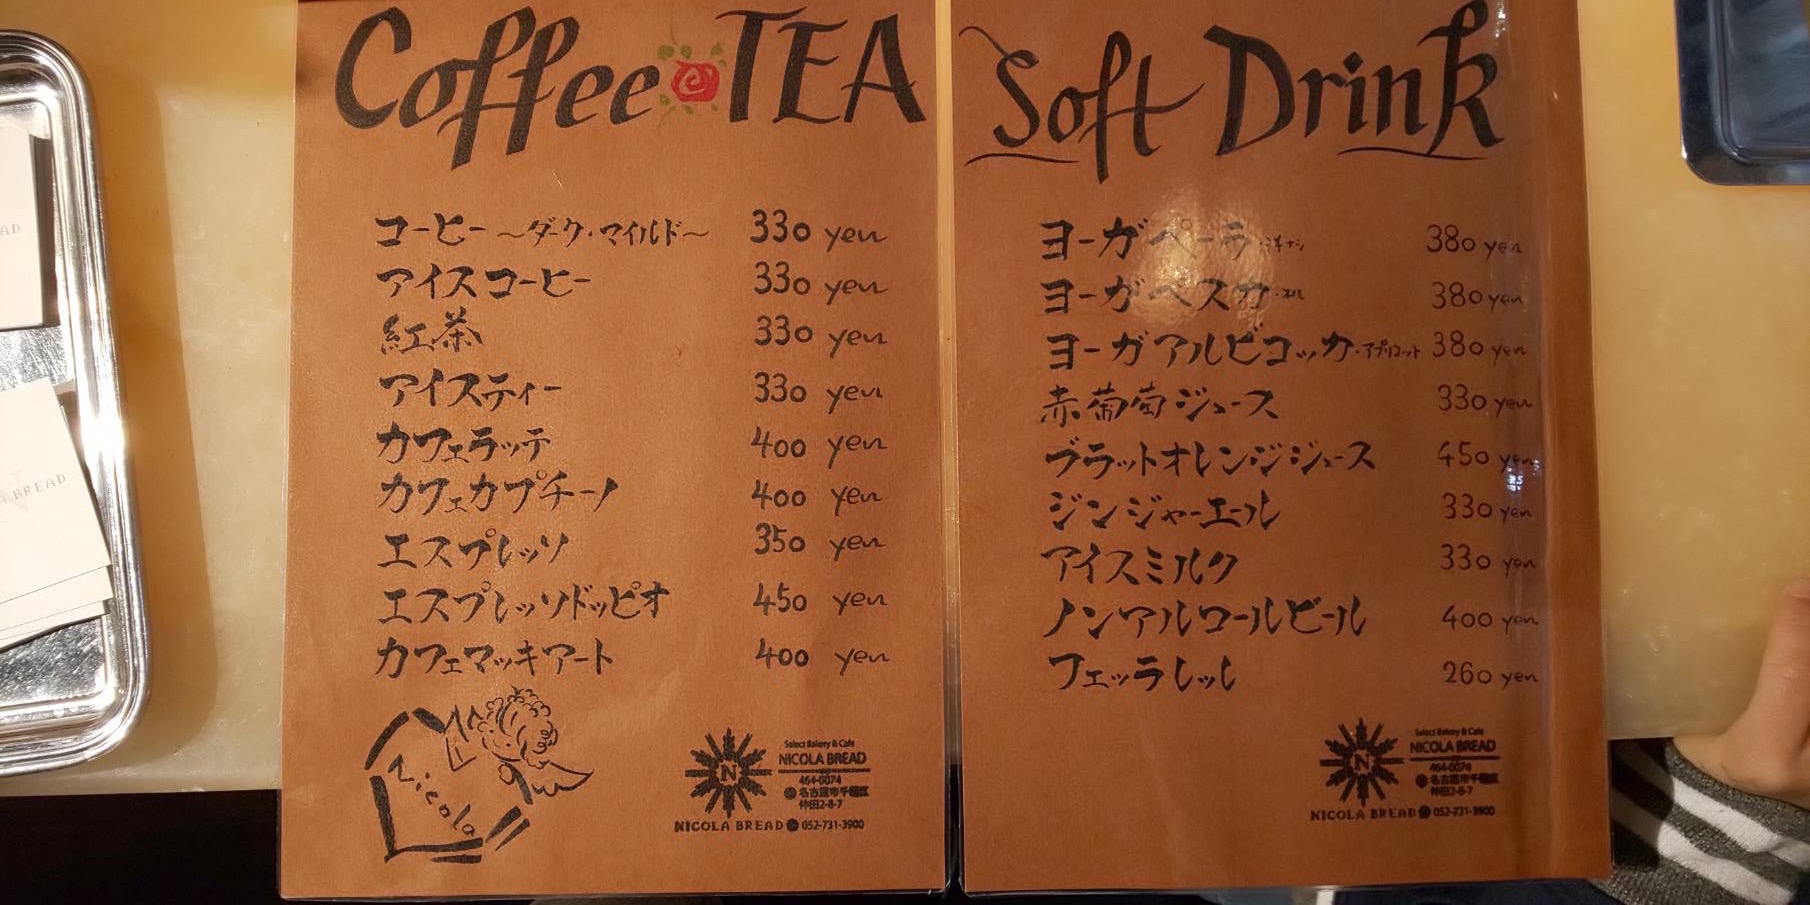 Coffee TEA
コーヒー ～ダーク・マイルド～ 330 yen
アイスコーヒー 330 yen
紅茶 330 yen
アイスティー 330 yen
カフェラッテ 400 yen
カフェカプチーノ 400 yen
エスプレッソ 350 yen
エスプレッソドッピオ 450 yen
カフェマッキアート 400 yen
Nicola
N
Select Bakery & Cafe
NICOLA BREAD
464-0074
名古屋市千種区
仲田2-8-7
NICOLA BREAD 052-731-3900
Soft Drink
ヨーガペーラ・洋ナシ 380 yen
ヨーガペスカ・桃 380 yen
ヨーガアルビコッカ・アプリコット 380 yen
赤葡萄ジュース 330 yen
ブラットオレンジジュース 450 yen
ジンジャーエール 330 yen
アイスミルク 330 yen
ノンアルコールビール 400 yen
フェッラレッレ 260 yen
N
Select Bakery & Cafe
NICOLA BREAD
464-0074
名古屋市千種区
仲田2-8-7
NICOLA BREAD 052-731-3900
BREAD